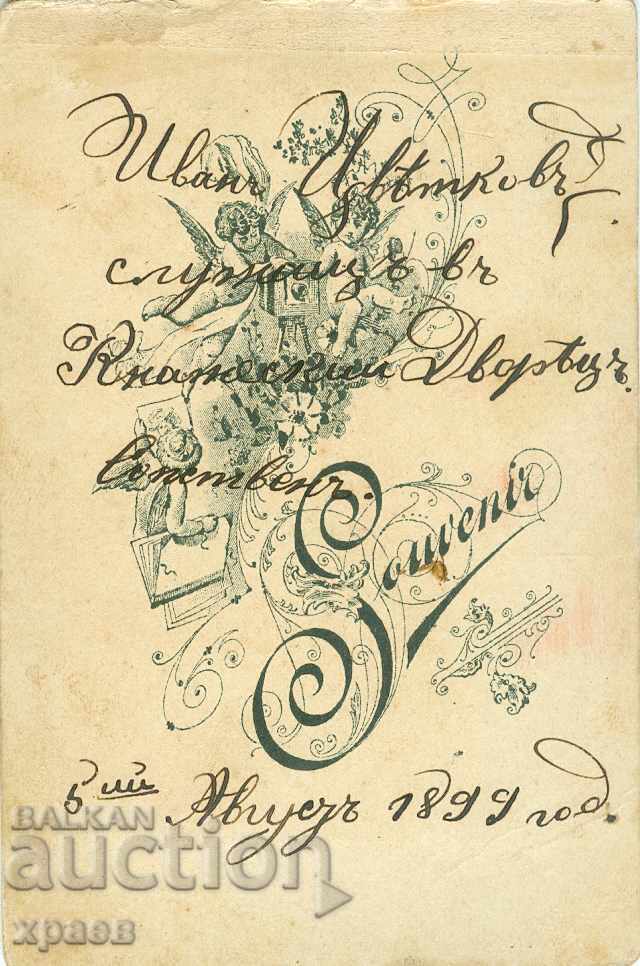 Иванъ Цвѣтковъ
служащъ въ
Княжеский Дворѣцъ.
Souvenir
5 ий Августъ 1899 год.
BALKAN
auction
храев